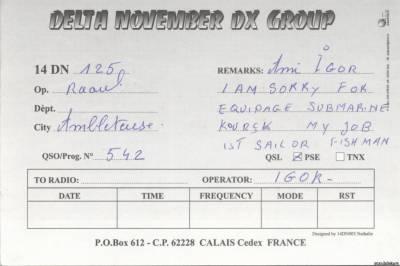 DELTA NOVEMBER DX GROUP
14 DN 125
Op. Raoul
Dépt.
City Ambleteuse.
QSO/Prog. N° 542
REMARKS: Ami IGOR
I AM SORRY FOR
EQUIPAGE SUBMARINE
KOURSK MY JOB
IST SAILOR FISHMAN
QSL ☒ PSE ☐ TNX
TO RADIO: OPERATOR: IGOR-
DATE TIME FREQUENCY MODE RST
Designed by 14DN003 Nathalie
P.O.Box 612 - C.P. 62228 CALAIS Cedex FRANCE